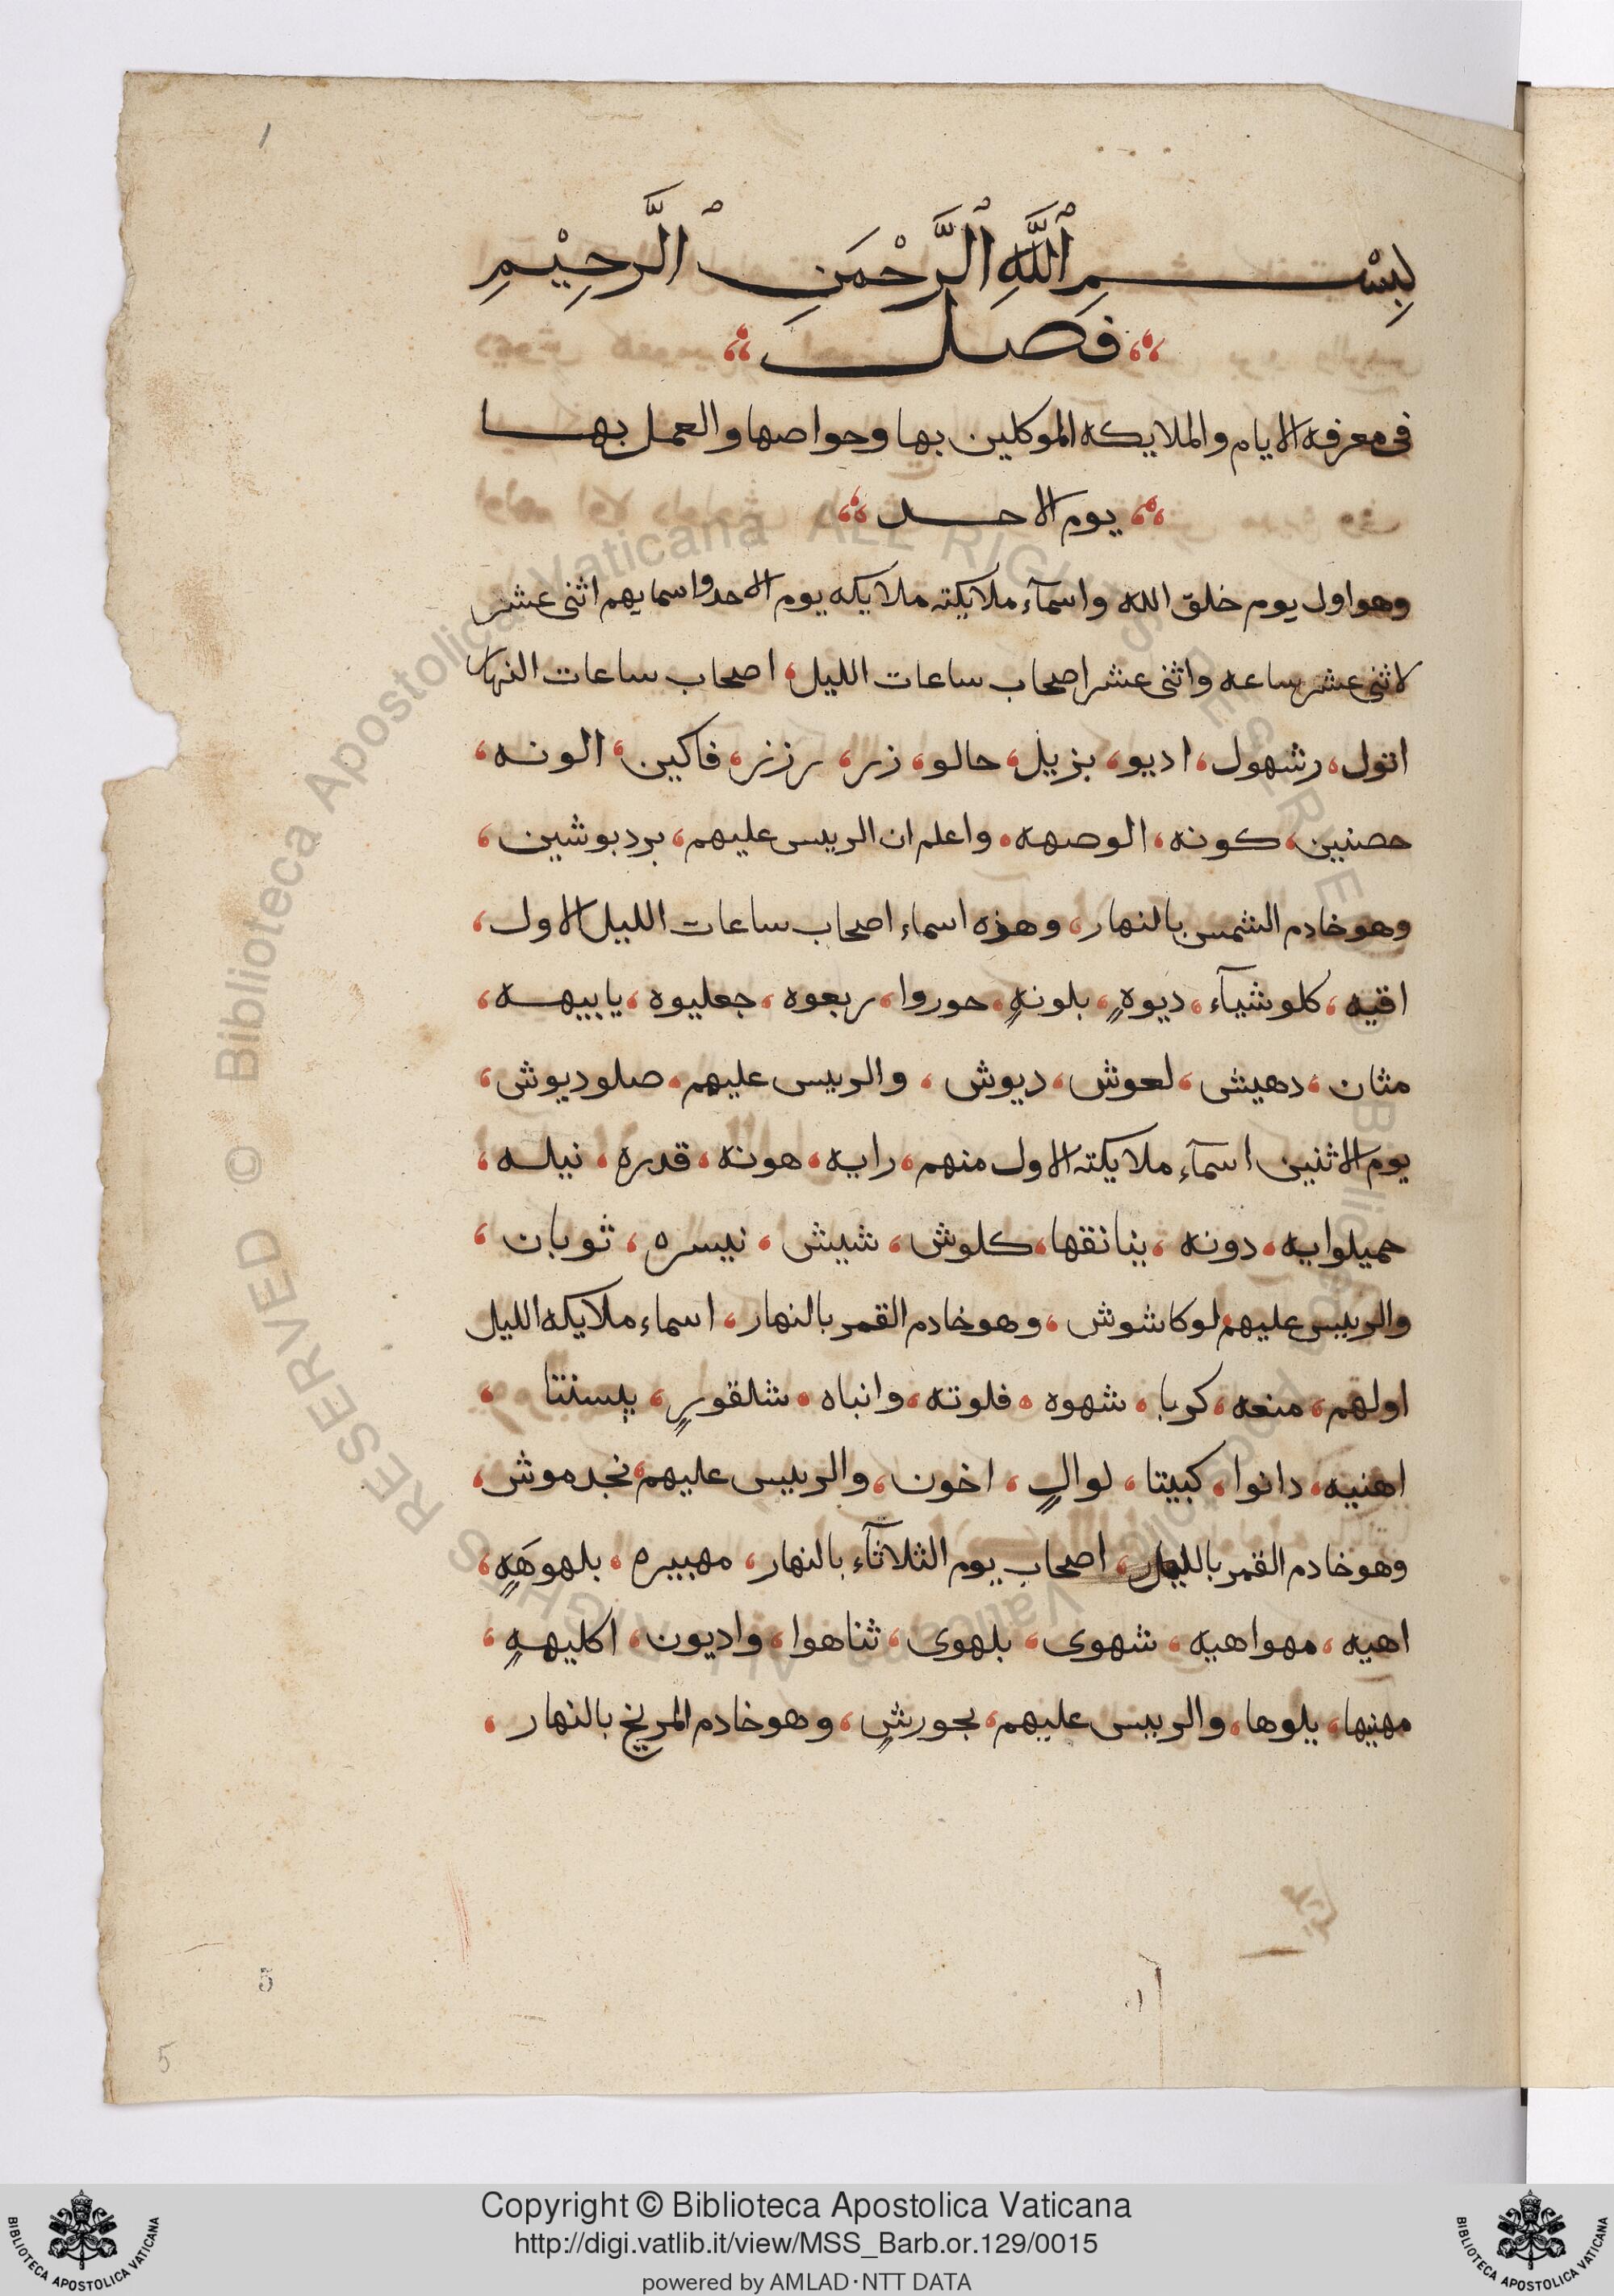 1
بِسْمِ ٱللَّهِ ٱلرَّحْمَنِ ٱلرَّحِيْمِ
فصل
فى معرفه الايام والملايكه الموكلين بها وحواصها والعمل بها
يوم الاحد
وهو اول يوم خلق الله واسمآء ملايكته ملايكه يوم الاحد واسمايهم اثنى عشر
لاثنى عشر ساعه واثنى عشر اصحاب ساعات الليل، اصحاب ساعات النهار
اتول، رشهول، اديو، بزيل، حالو، زر، رزز، فاكين، الونه،
حصنين، كونه، الوصهه، واعلم ان الرييس عليهم، برد بوشين،
وهو خادم الشمس بالنهار، وهذه اسماء اصحاب ساعات الليل الاول،
اقيه، كلوشيآء، ديوهٍ، بلونهٍ، حوروا، ربعوه، جعليوه، يابيهه،
مثان، دهيشى، لعوش، ديوش، والرييس عليهم، صلوديوش،
يوم الاثنين اسمآء ملايكته الاول منهم، رايه، هونه، قدره، نيله،
حميلوايه، دونه، ينانقها، كلوش، شيش، نيسره، ثوبان،
والرييس عليهم لوكاشوش، وهو خادم القمر بالنهار، اسماء ملايكه الليل
اولهم، منعه، كربا، شهوه، فلوته، وانباه، شلقورٍ، يسنتا،
اهنيه، دانوا، كبيتا، لوالٍ، اخون، والرييس عليهم، نجدموش،
وهو خادم القمر بالليل، اصحاب يوم الثلاثآء بالنهار، مهبيره، بلهوهَهٍ،
اهيه، مهواهيه، شهوى، بلهوى، ثناهوا، واديون، اكليههٍ،
مهنيها، يلوها، والرييس عليهم، بحورشٍ، وهو خادم المريخ بالنهار،
5
5
Copyright © Biblioteca Apostolica Vaticana
http://digi.vatlib.it/view/MSS_Barb.or.129/0015
powered by AMLAD·NTT DATA